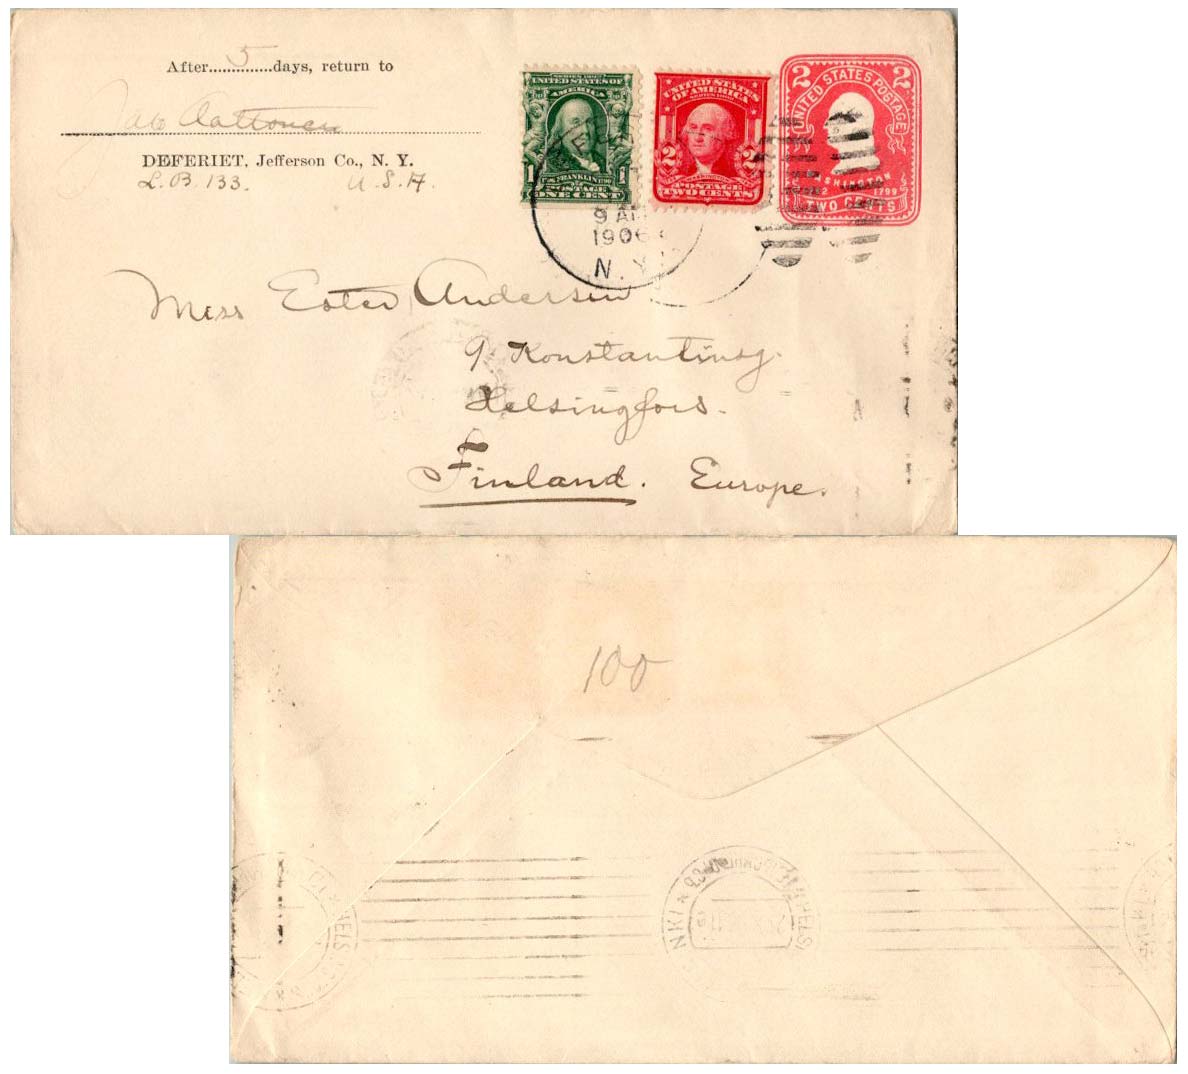 After 5 days, return to
DEFERIET, Jefferson Co., N. Y.
L. B. 133. U. S. A.
SERIES 1902
UNITED STATES OF
AMERICA
1 FRANKLIN 1
POSTAGE
ONE CENT
UNITED STATES
OF AMERICA
SERIES 1902
2 2
WASHINGTON
POSTAGE
TWO CENTS
2 UNITED STATES POSTAGE 2
WASHINGTON
1799
TWO CENTS
9 AM
1906
N.Y.
Miss Ester Andersin
9 Konstantinsg.
Helsingfors.
Finland. Europe.
100
HELSI NKI